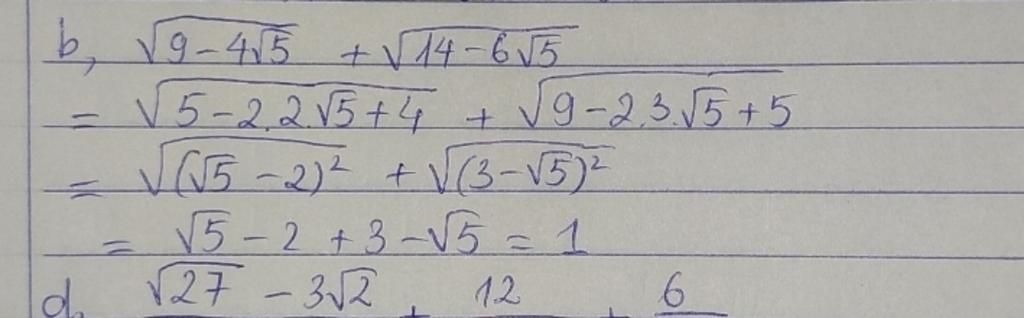 b, √(9-4√5) + √(14-6√5)
= √(5-2.2.√5+4) + √(9-2.3.√5+5)
= √((√5-2)²) + √((3-√5)²)
= √5-2+3-√5 = 1
d, √27 - 3√2 + 12 + 6